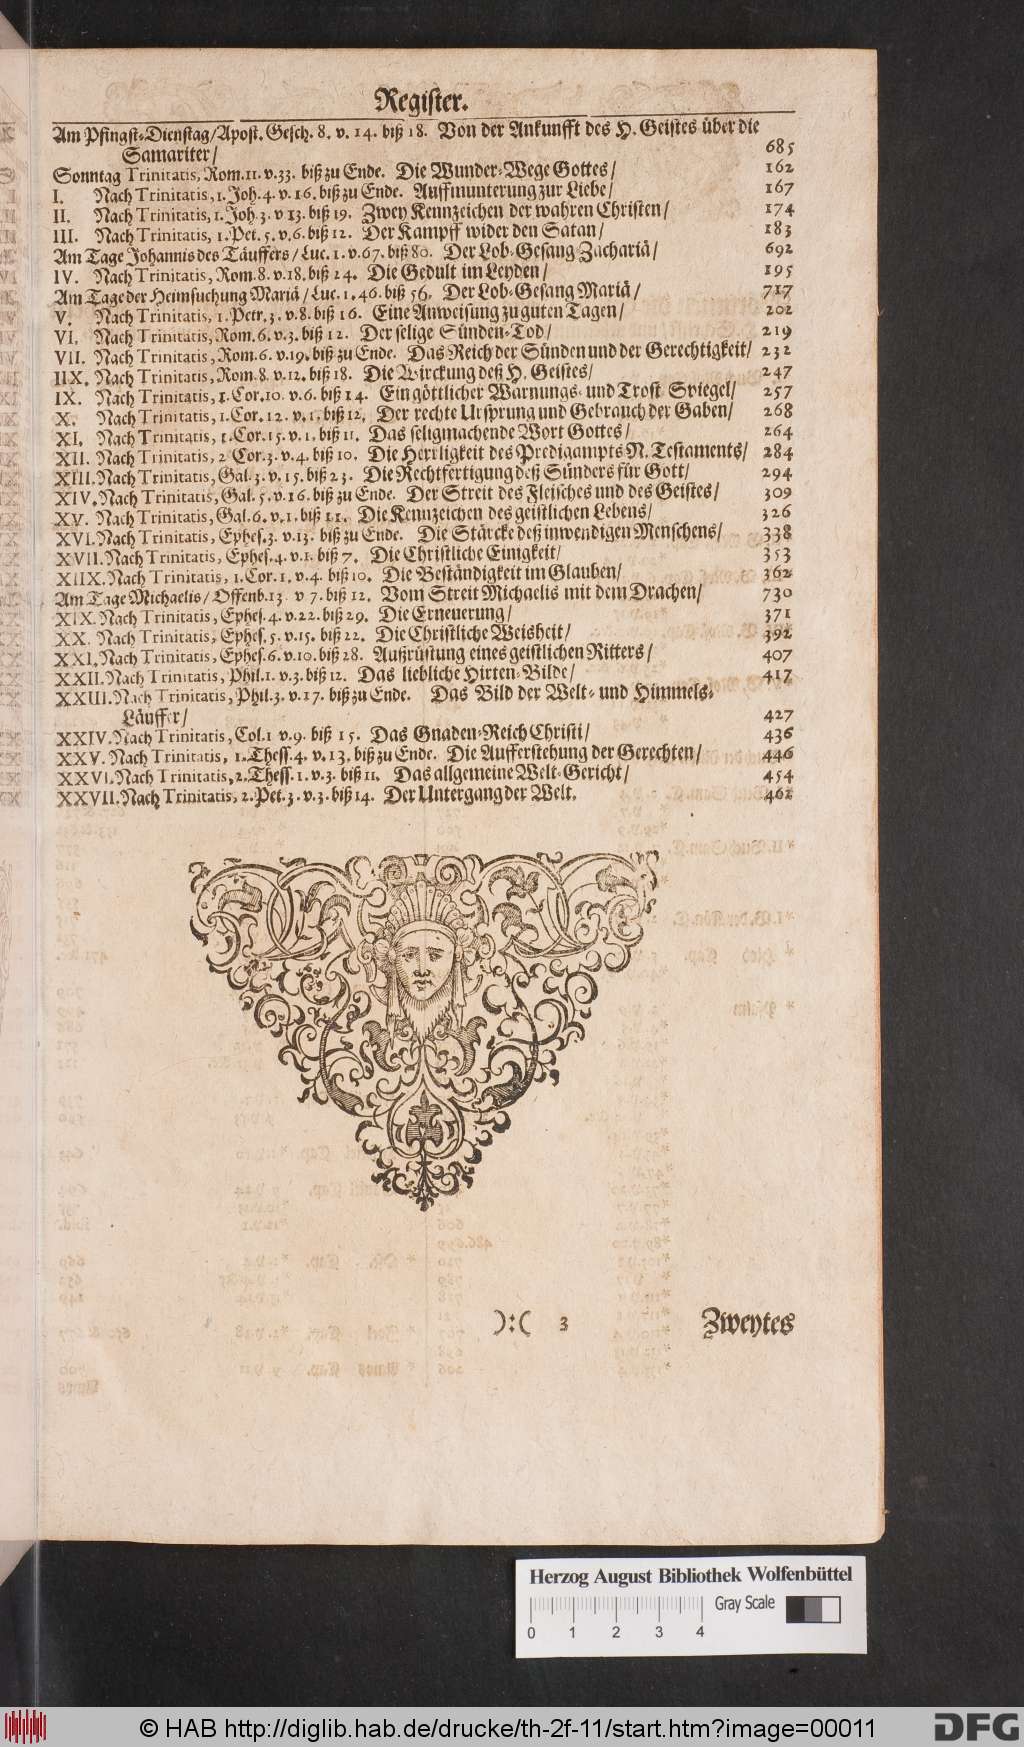 Register.
Am Pfingst-Dienstag/Apost. Gesch. 8. v. 14. biß 18. Von der Ankunfft des H. Geistes über die
Samariter/ 685
Sonntag Trinitatis, Rom. 11. v. 33. biß zu Ende. Die Wunder-Wege Gottes/ 162
I. Nach Trinitatis, 1. Joh. 4. v. 16. biß zu Ende. Auffmunterung zur Liebe/ 167
II. Nach Trinitatis, 1. Joh. 3. v 13. biß 19. Zwey Kennzeichen der wahren Christen/ 174
III. Nach Trinitatis, 1. Pet. 5. v. 6. biß 12. Der Kampff wider den Satan/ 183
Am Tage Johannis des Täuffers/ Luc. 1. v. 67. biß 80. Der Lob-Gesang Zachariä/ 692
IV. Nach Trinitatis, Rom. 8. v. 18. biß 24. Die Gedult im Leyden/ 195
Am Tage der Heimsuchung Mariä/ Luc. 1. 46. biß 56. Der Lob-Gesang Mariä/ 717
V. Nach Trinitatis, 1. Petr. 3. v. 8. biß 16. Eine Anweisung zu guten Tagen/ 202
VI. Nach Trinitatis, Rom. 6. v. 3. biß 12. Der selige Sünden-Tod/ 219
VII. Nach Trinitatis, Rom. 6. v. 19. biß zu Ende. Das Reich der Sünden und der Gerechtigkeit/ 232
IIX. Nach Trinitatis, Rom. 8. v. 12. biß 18. Die Wirckung deß H. Geistes/ 247
IX. Nach Trinitatis, 1. Cor. 10. v. 6. biß 14. Ein göttlicher Warnungs- und Trost Spiegel/ 257
X. Nach Trinitatis, 1. Cor. 12. v. 1. biß 12. Der rechte Ursprung und Gebrauch der Gaben/ 268
XI. Nach Trinitatis, 1. Cor. 15. v. 1. biß 11. Das seligmachende Wort Gottes/ 264
XII. Nach Trinitatis, 2 Cor. 3. v. 4. biß 10. Die Herrligkeit des Predigampts N. Testaments/ 284
XIII. Nach Trinitatis, Gal. 3. v. 15. biß 23. Die Rechtfertigung deß Sünders für Gott/ 294
XIV. Nach Trinitatis, Gal. 5. v. 16. biß zu Ende. Der Streit des Fleisches und des Geistes/ 309
XV. Nach Trinitatis, Gal. 6. v. 1. biß 11. Die Kennzeichen des geistlichen Lebens/ 326
XVI. Nach Trinitatis, Ephes. 3. v. 13. biß zu Ende. Die Stärcke deß inwendigen Menschens/ 338
XVII. Nach Trinitatis, Ephes. 4. v. 1. biß 7. Die Christliche Einigkeit/ 353
XIIX. Nach Trinitatis, 1. Cor. 1. v. 4. biß 10. Die Beständigkeit im Glauben/ 362
Am Tage Michaelis/ Offenb. 13 v 7. biß 12. Vom Streit Michaelis mit dem Drachen/ 730
XIX. Nach Trinitatis, Ephes. 4. v. 22. biß 29. Die Erneuerung/ 371
XX. Nach Trinitatis, Ephes. 5. v. 15. biß 22. Die Christliche Weisheit/ 392
XXI. Nach Trinitatis, Ephes. 6. v. 10. biß 28. Außrüstung eines geistlichen Ritters/ 407
XXII. Nach Trinitatis, Phil. 1. v. 3. biß 12. Das liebliche Hirten-Bilde/ 417
XXIII. Nach Trinitatis, Phil. 3. v. 17. biß zu Ende. Das Bild der Welt- und Himmels-
Läuffer/ 427
XXIV. Nach Trinitatis, Col. 1 v. 9. biß 15. Das Gnaden-Reich Christi/ 436
XXV. Nach Trinitatis, 1. Thess. 4. v. 13. biß zu Ende. Die Aufferstehung der Gerechten/ 446
XXVI. Nach Trinitatis, 2. Thess. 1. v. 3. biß 11. Das allgemeine Welt-Gericht/ 454
XXVII. Nach Trinitatis, 2. Pet. 3. v. 3. biß 14. Der Untergang der Welt. 462
):( 3 Zweytes
Herzog August Bibliothek Wolfenbüttel
Gray Scale
0 1 2 3 4
© HAB http://diglib.hab.de/drucke/th-2f-11/start.htm?image=00011
DFG